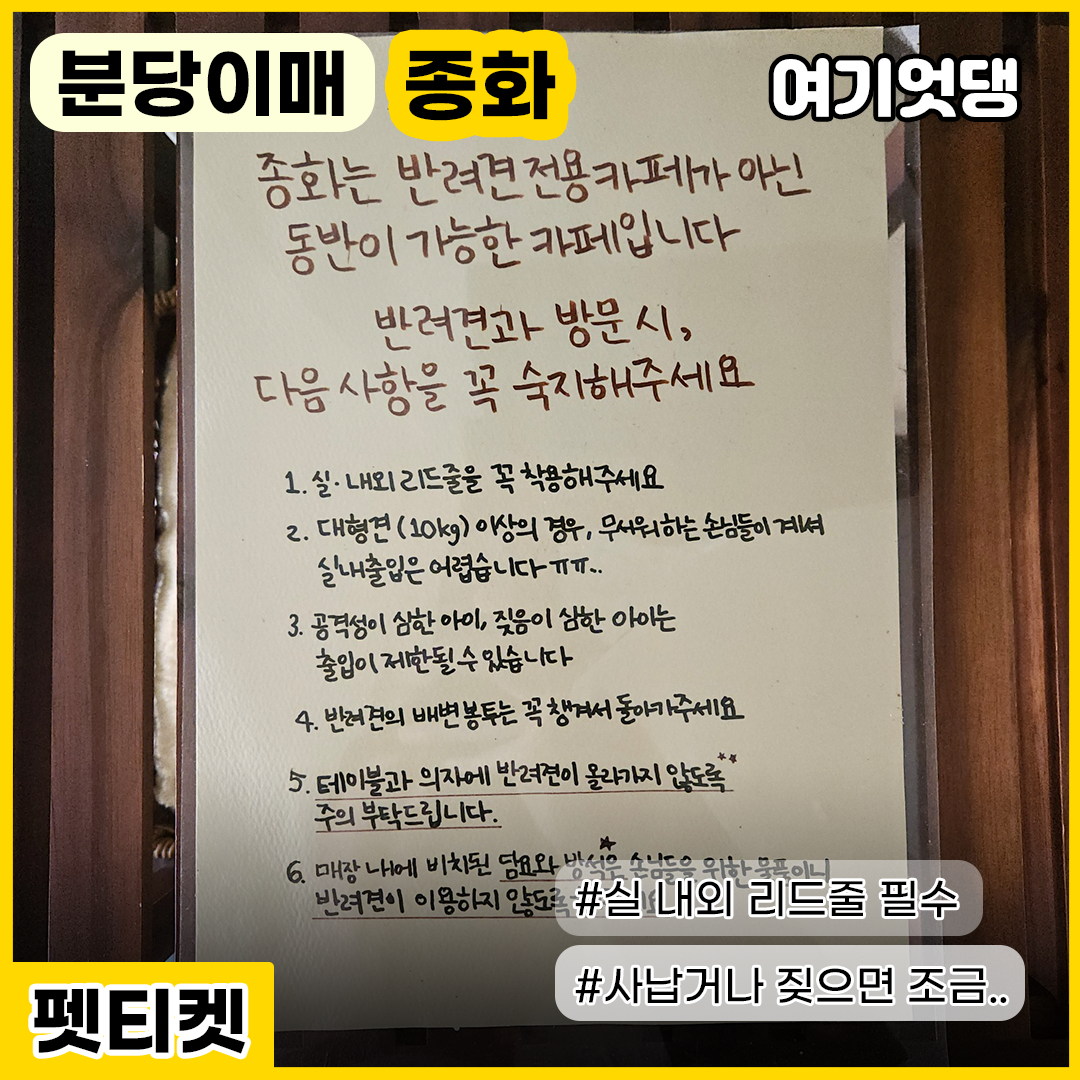 분당이매 종화
여기엇댕
종화는 반려견 전용 카페가 아닌
동반이 가능한 카페입니다
반려견과 방문 시,
다음 사항을 꼭 숙지해주세요
1. 실·내외 리드줄을 꼭 착용해주세요
2. 대형견 (10kg) 이상의 경우, 무서워하는 손님들이 계셔
실내출입은 어렵습니다 ㅠㅠ..
3. 공격성이 심한 아이, 짖음이 심한 아이는
출입이 제한될 수 있습니다
4. 반려견의 배변봉투는 꼭 챙겨서 돌아가주세요
5. 테이블과 의자에 반려견이 올라가지 않도록
주의 부탁드립니다.
6. 매장 내에 비치된 담요와 방석은 손님들을 위한 물품이니
반려견이 이용하지 않도록
#실 내외 리드줄 필수
#사납거나 짖으면 조금..
펫티켓